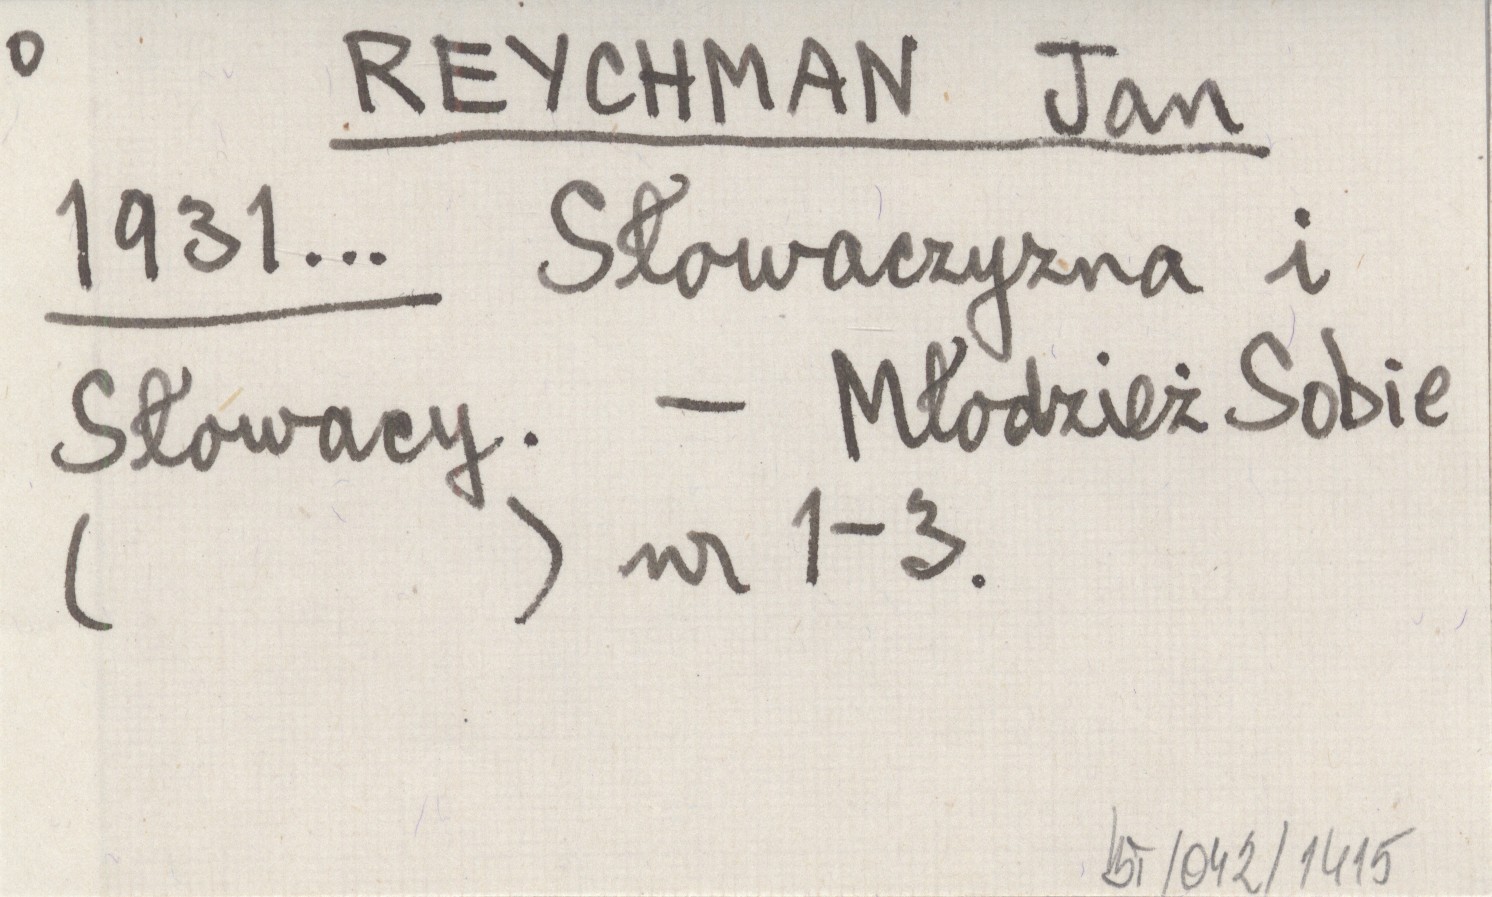 o REYCHMAN Jan
1931... Słowaczyzna i
Słowacy. – Młodzież Sobie
( ) nr 1-3.
/042/1415